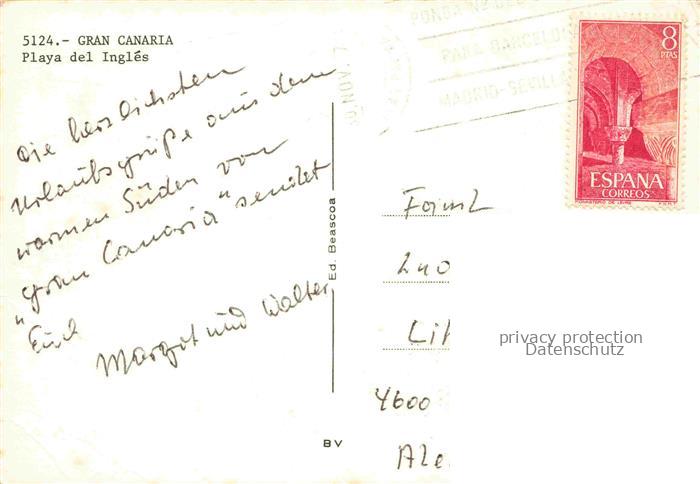 5124.- GRAN CANARIA
Playa del Inglés
Die herzlichsten
Urlaubsgrüße aus dem
warmen Süden von
"Gran Canaria" sendet
Euch
Margot und Walter
Ed. Beascoa
BV
NOV. 7
PARA BARCELONA
MADRID-SEVILLA
8
PTAS
ESPAÑA
CORREOS
MONASTERIO DE LEYRE
Faml
Lit
4600
Ale
privacy protection
Datenschutz